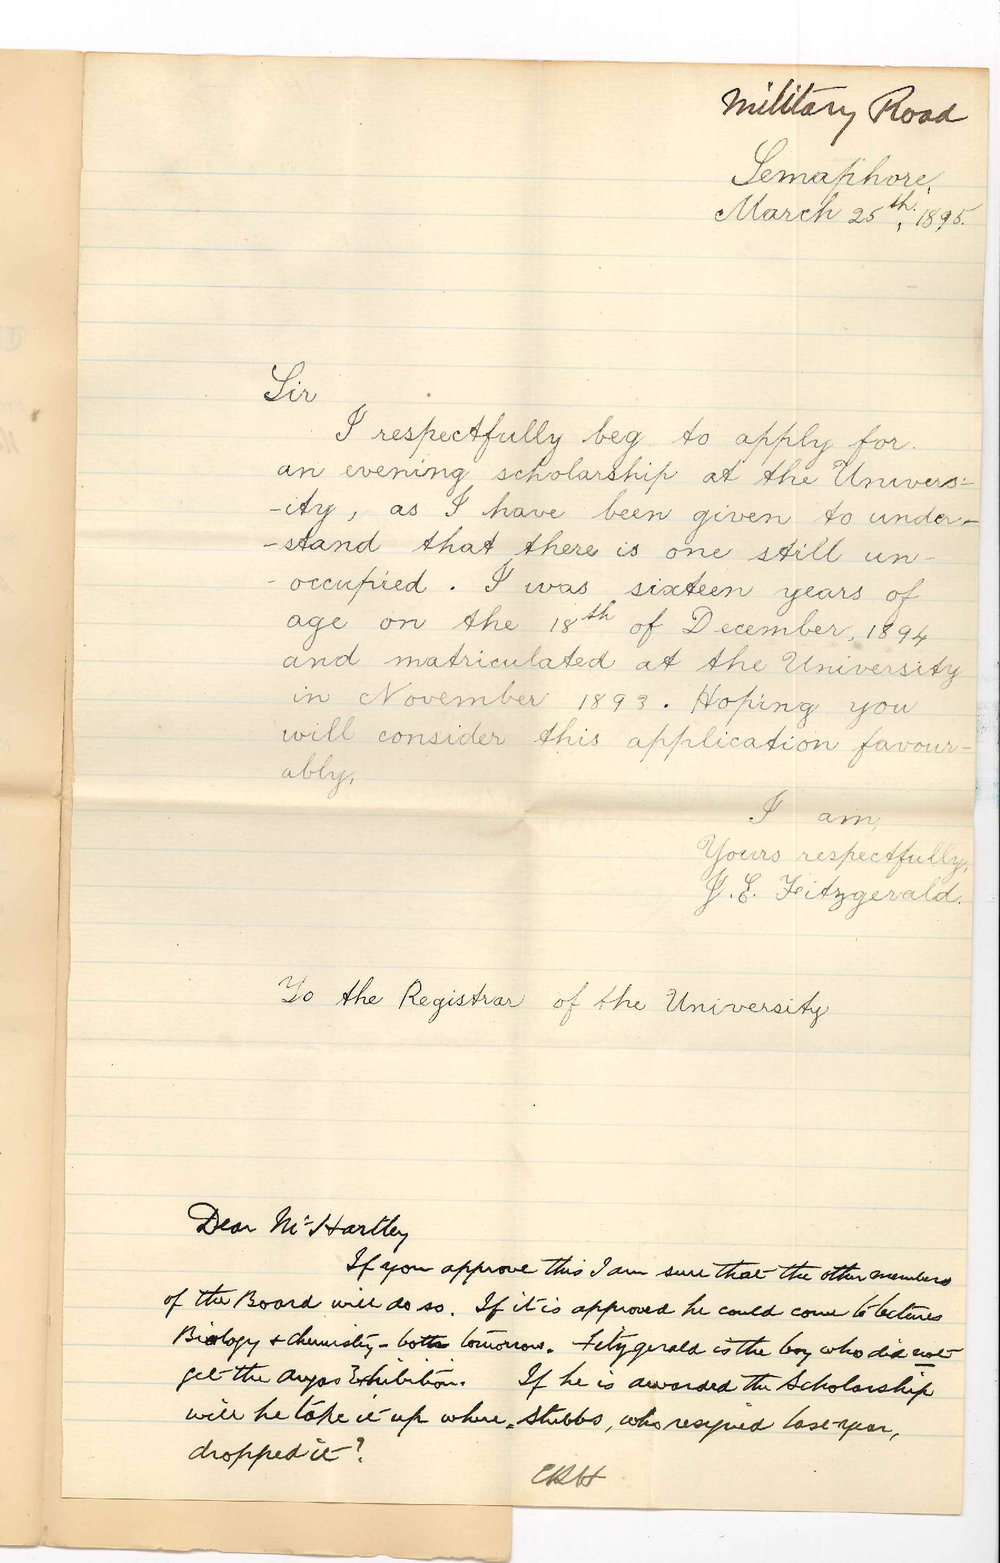 Military Road
Semaphore,
March 25th, 1895.
Sir
I respectfully beg to apply for
an evening scholarship at the Univers-
-ity, as I have been given to under-
-stand that there is one still un-
-occupied. I was sixteen years of
age on the 18th of December, 1894
and matriculated at the University
in November 1893. Hoping you
will consider this application favour-
ably,
I am,
Yours respectfully,
J. E. Fitzgerald.
To the Registrar of the University
Dear Mr Hartley
If you approve this I am sure that the other members
of the Board will do so. If it is approved he could come to lectures
Biology & chemistry - both tomorrow. Fitzgerald is the boy who did not
get the Angas Exhibition. If he is awarded the Scholarship
will he take it up where Stubbs, who resigned last year,
dropped it?